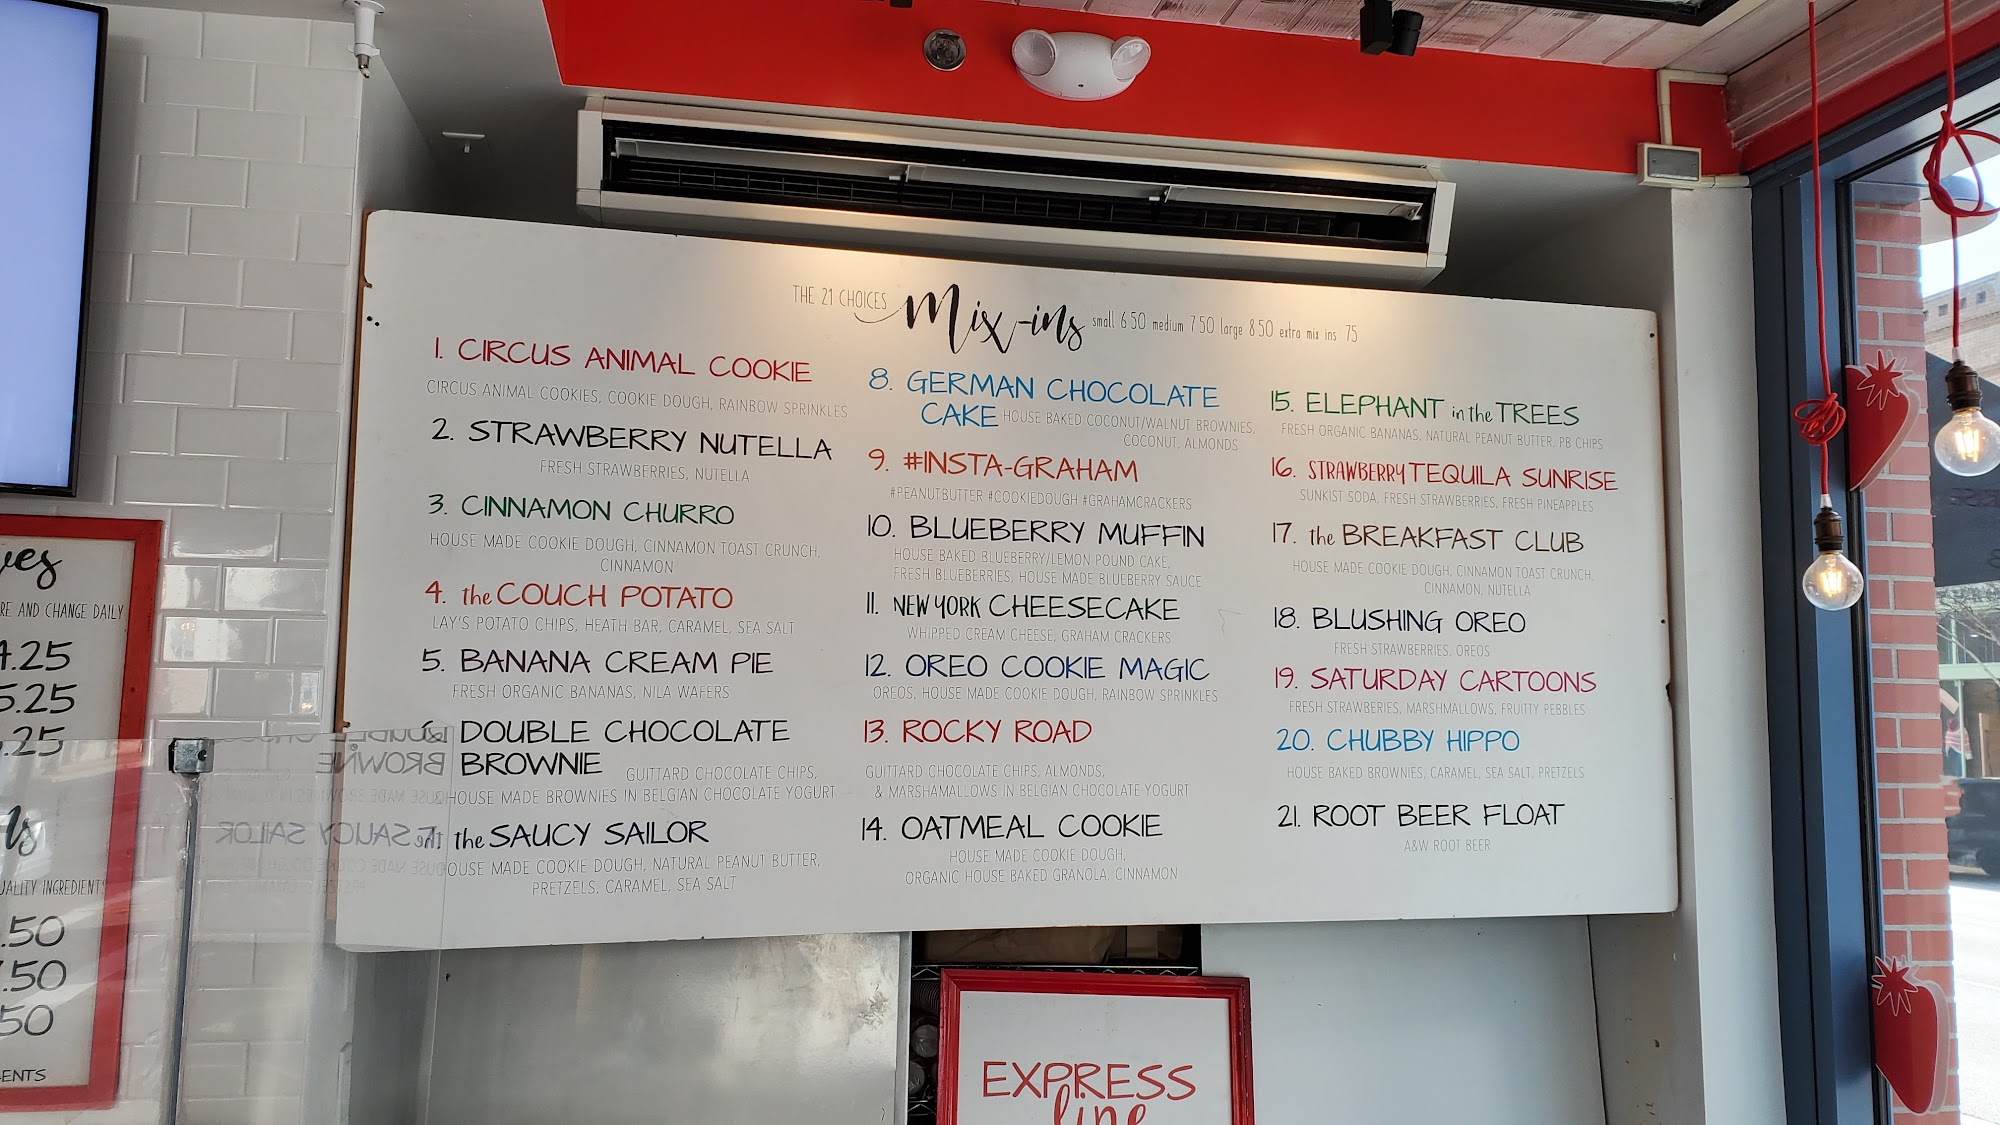 THE 21 CHOICES Mix-ins small 6.50 medium 7.50 large 8.50 extra mix ins .75
1. CIRCUS ANIMAL COOKIE
CIRCUS ANIMAL COOKIES, COOKIE DOUGH, RAINBOW SPRINKLES
2. STRAWBERRY NUTELLA
FRESH STRAWBERRIES, NUTELLA
3. CINNAMON CHURRO
HOUSE MADE COOKIE DOUGH, CINNAMON TOAST CRUNCH,
CINNAMON
4. the COUCH POTATO
LAY'S POTATO CHIPS, HEATH BAR, CARAMEL, SEA SALT
5. BANANA CREAM PIE
FRESH ORGANIC BANANAS, NILA WAFERS
6. DOUBLE CHOCOLATE
BROWNIE GUITTARD CHOCOLATE CHIPS,
HOUSE MADE BROWNIES IN BELGIAN CHOCOLATE YOGURT
7. the SAUCY SAILOR
HOUSE MADE COOKIE DOUGH, NATURAL PEANUT BUTTER,
PRETZELS, CARAMEL, SEA SALT
8. GERMAN CHOCOLATE
CAKE HOUSE BAKED COCONUT/WALNUT BROWNIES,
COCONUT, ALMONDS
9. #INSTA-GRAHAM
#PEANUTBUTTER #COOKIEDOUGH #GRAHAMCRACKERS
10. BLUEBERRY MUFFIN
HOUSE BAKED BLUEBERRY/LEMON POUND CAKE,
FRESH BLUEBERRIES, HOUSE MADE BLUEBERRY SAUCE
11. NEW YORK CHEESECAKE
WHIPPED CREAM CHEESE, GRAHAM CRACKERS
12. OREO COOKIE MAGIC
OREOS, HOUSE MADE COOKIE DOUGH, RAINBOW SPRINKLES
13. ROCKY ROAD
GUITTARD CHOCOLATE CHIPS, ALMONDS,
& MARSHAMALLOWS IN BELGIAN CHOCOLATE YOGURT
14. OATMEAL COOKIE
HOUSE MADE COOKIE DOUGH,
ORGANIC HOUSE BAKED GRANOLA, CINNAMON
15. ELEPHANT in the TREES
FRESH ORGANIC BANANAS, NATURAL PEANUT BUTTER, PB CHIPS
16. STRAWBERRY TEQUILA SUNRISE
SUNKIST SODA, FRESH STRAWBERRIES, FRESH PINEAPPLES
17. the BREAKFAST CLUB
HOUSE MADE COOKIE DOUGH, CINNAMON TOAST CRUNCH,
CINNAMON, NUTELLA
18. BLUSHING OREO
FRESH STRAWBERRIES, OREOS
19. SATURDAY CARTOONS
FRESH STRAWBERIES, MARSHMALLOWS, FRUITY PEBBLES
20. CHUBBY HIPPO
HOUSE BAKED BROWNIES, CARAMEL, SEA SALT, PRETZELS
21. ROOT BEER FLOAT
A&W ROOT BEER
AND CHANGE DAILY
4.25
5.25
.25
INGREDIENTS
.50
7.50
.50
EXPRESS
line